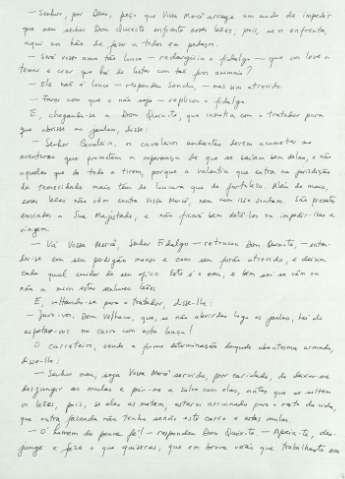 — Senhor, por Deus, peço que Vossa Mercê arranje um modo de impedir
que meu senhor Dom Quixote enfrente esses leões, pois, se os enfrenta,
aqui nos hão de fazer a todos em pedaços.
— Será vosso amo tão louco — redarguiu o fidalgo — que vos leve a
temer e crer que há de lutar com tais feros animais?
— Ele não é louco — respondeu Sancho, — mas sim atrevido.
— Farei com que o não seja — replicou o fidalgo.
E, chegando-se a Dom Quixote, que insistia com o tratador para
que abrisse as jaulas, disse:
— Senhor Cavaleiro, os cavaleiros andantes devem acometer as
aventuras que prometem a esperança de que se saiam bem delas, e não
aquelas que de todo a tiram, porque a valentia que entra na jurisdição
da temeridade mais tem de loucura que de fortaleza. Além do mais,
esses leões não vêm contra Vossa Mercê, nem com isso sonham. São presentes
enviados a Sua Majestade, e não ficará bem detê-los ou impedir-lhes a
viagem.
— Vá Vossa Mercê, Senhor Fidalgo — retrucou Dom Quixote, — enten-
der-se com seu perdigão manso e com seu furão atrevido, e deixem
cada qual cuidar do seu ofício. Este é o meu, e bem sei se vêm ou
não a mim estes senhores leões.
E, voltando-se para o tratador, disse-lhe:
— Juro-vos, Dom Velhaco, que, se não abrirdes logo as jaulas, hei de
espetar-vos no carro com esta lança!
O carreteiro, vendo a firme determinação daquele abantesma armado,
disse-lhe:
— Senhor meu, seja Vossa Mercê servido, por caridade, de deixar-me
desjungir as mulas e pôr-me a salvo com elas, antes que se soltem
os leões, pois, se elas as matam, estarei arruinado para o resto da vida,
que outra fazenda não tenho senão este carro e estas mulas.
— Ó homem de pouca fé! — respondeu Dom Quixote. — Apeia-te, des-
junge e faze o que quiseres, que em breve verás que trabalhaste em